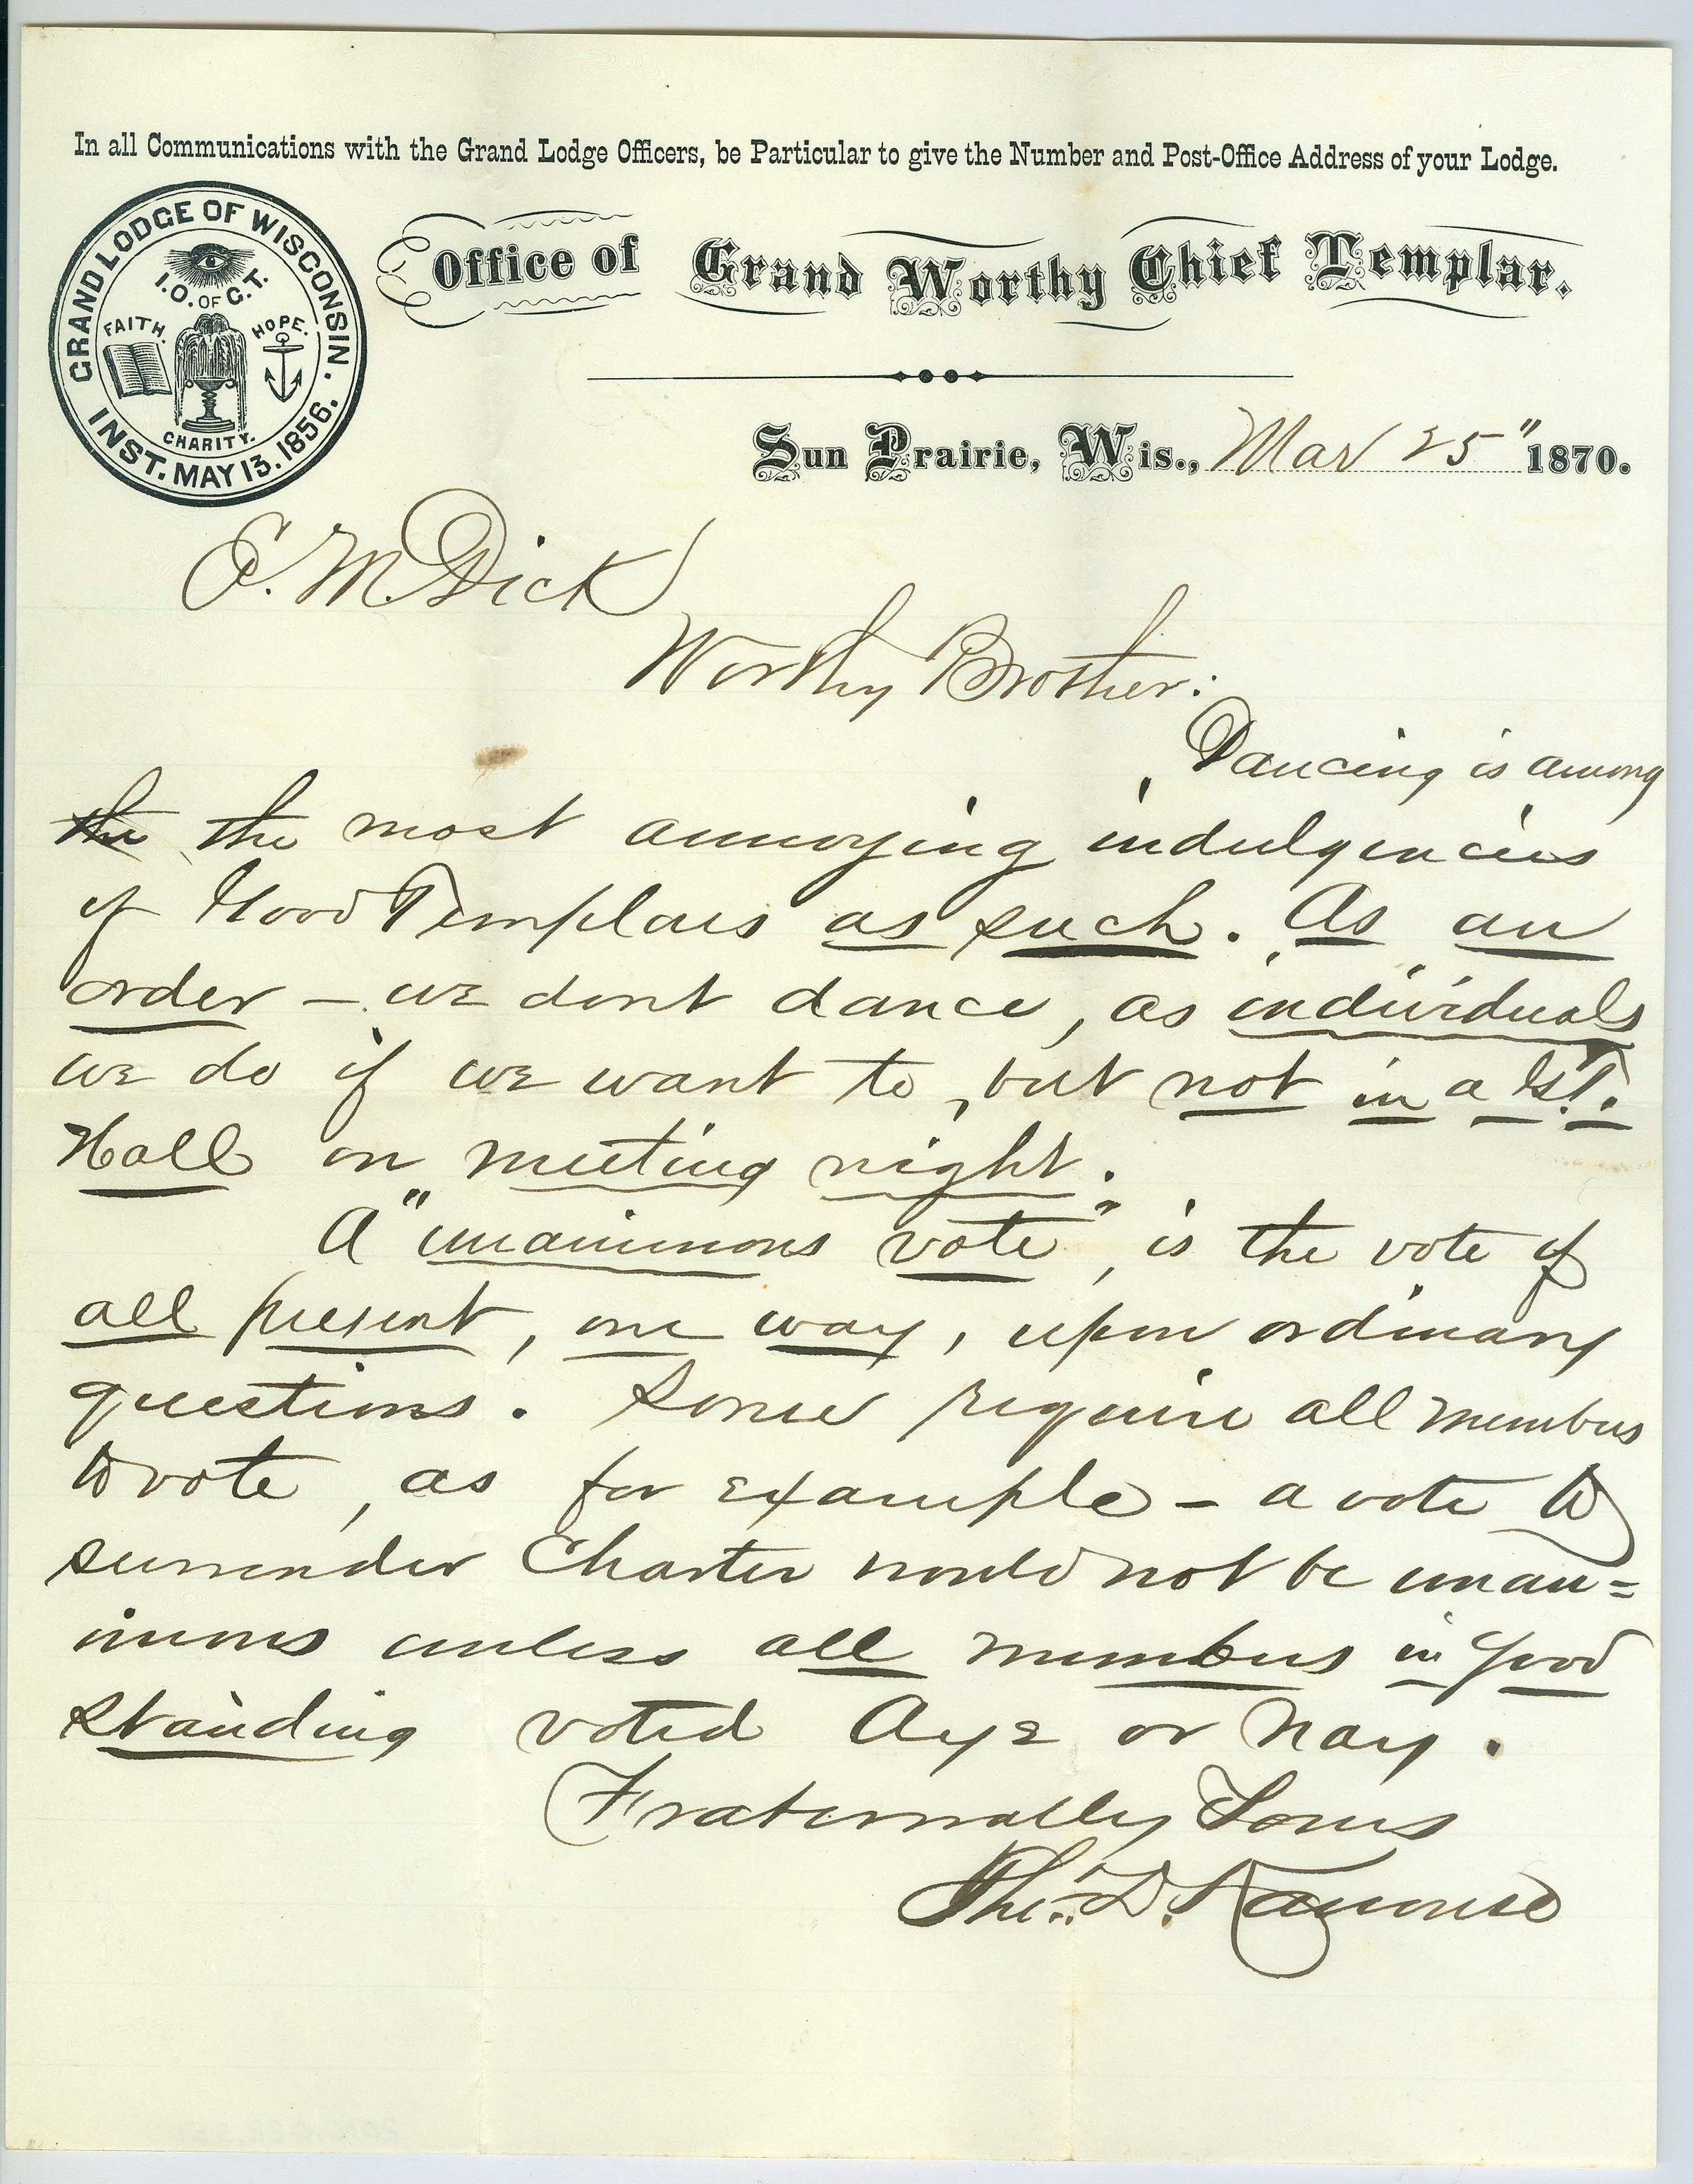 In all Communications with the Grand Lodge Officers, be Particular to give the Number and Post-Office Address of your Lodge.
GRAND LODGE OF WISCONSIN.
INST. MAY 13. 1856.
I.O. OF G.T.
FAITH.
HOPE.
CHARITY.
Office of Grand Worthy Chief Templar.
Sun Prairie, Wis., Mar 25" 1870.
E. M. Dick
Worthy Brother:
Dancing is among
the the most annoying indulgencies
of Good Templars as such. As an
order – we dont dance, as individuals
we do if we want to, but not in a G.T.
Hall on meeting night.
A "unanimous vote", is the vote of
all present, one way, upon ordinary
questions. Some require all members
to vote, as for example – a vote to
surrender Charter would not be unan=
imous unless all members in good
standing voted Aye or Nay.
Fraternally Yours
Theo. D. Kanouse